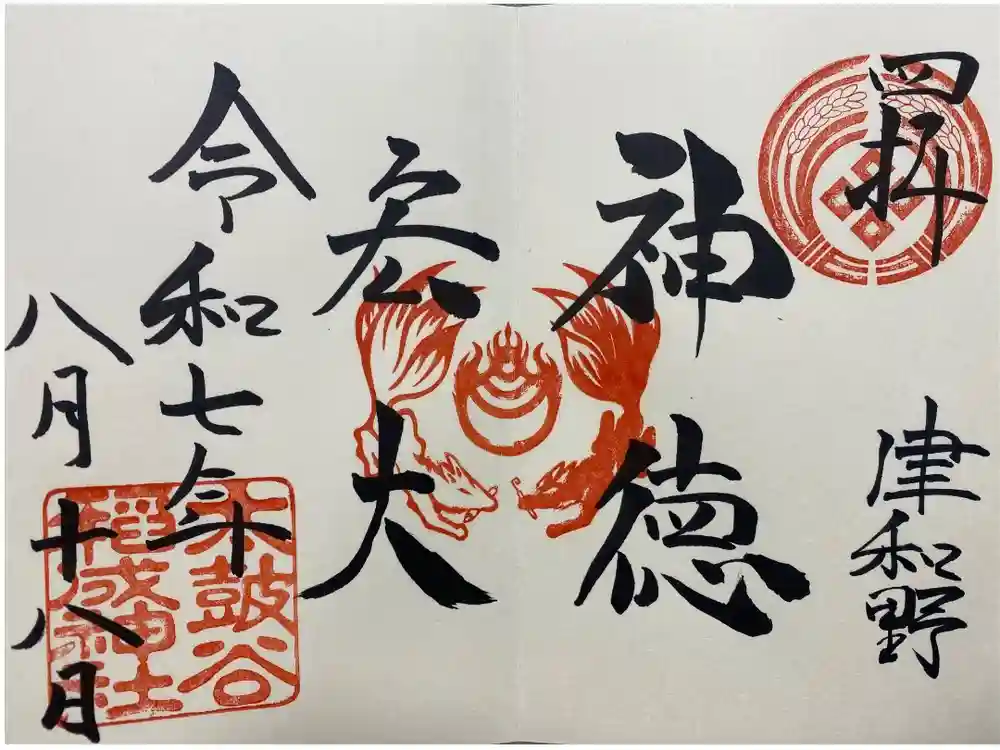 四拝
津和野
神徳
宏大
令和七年
八月十八月
太皷谷
稲成神社